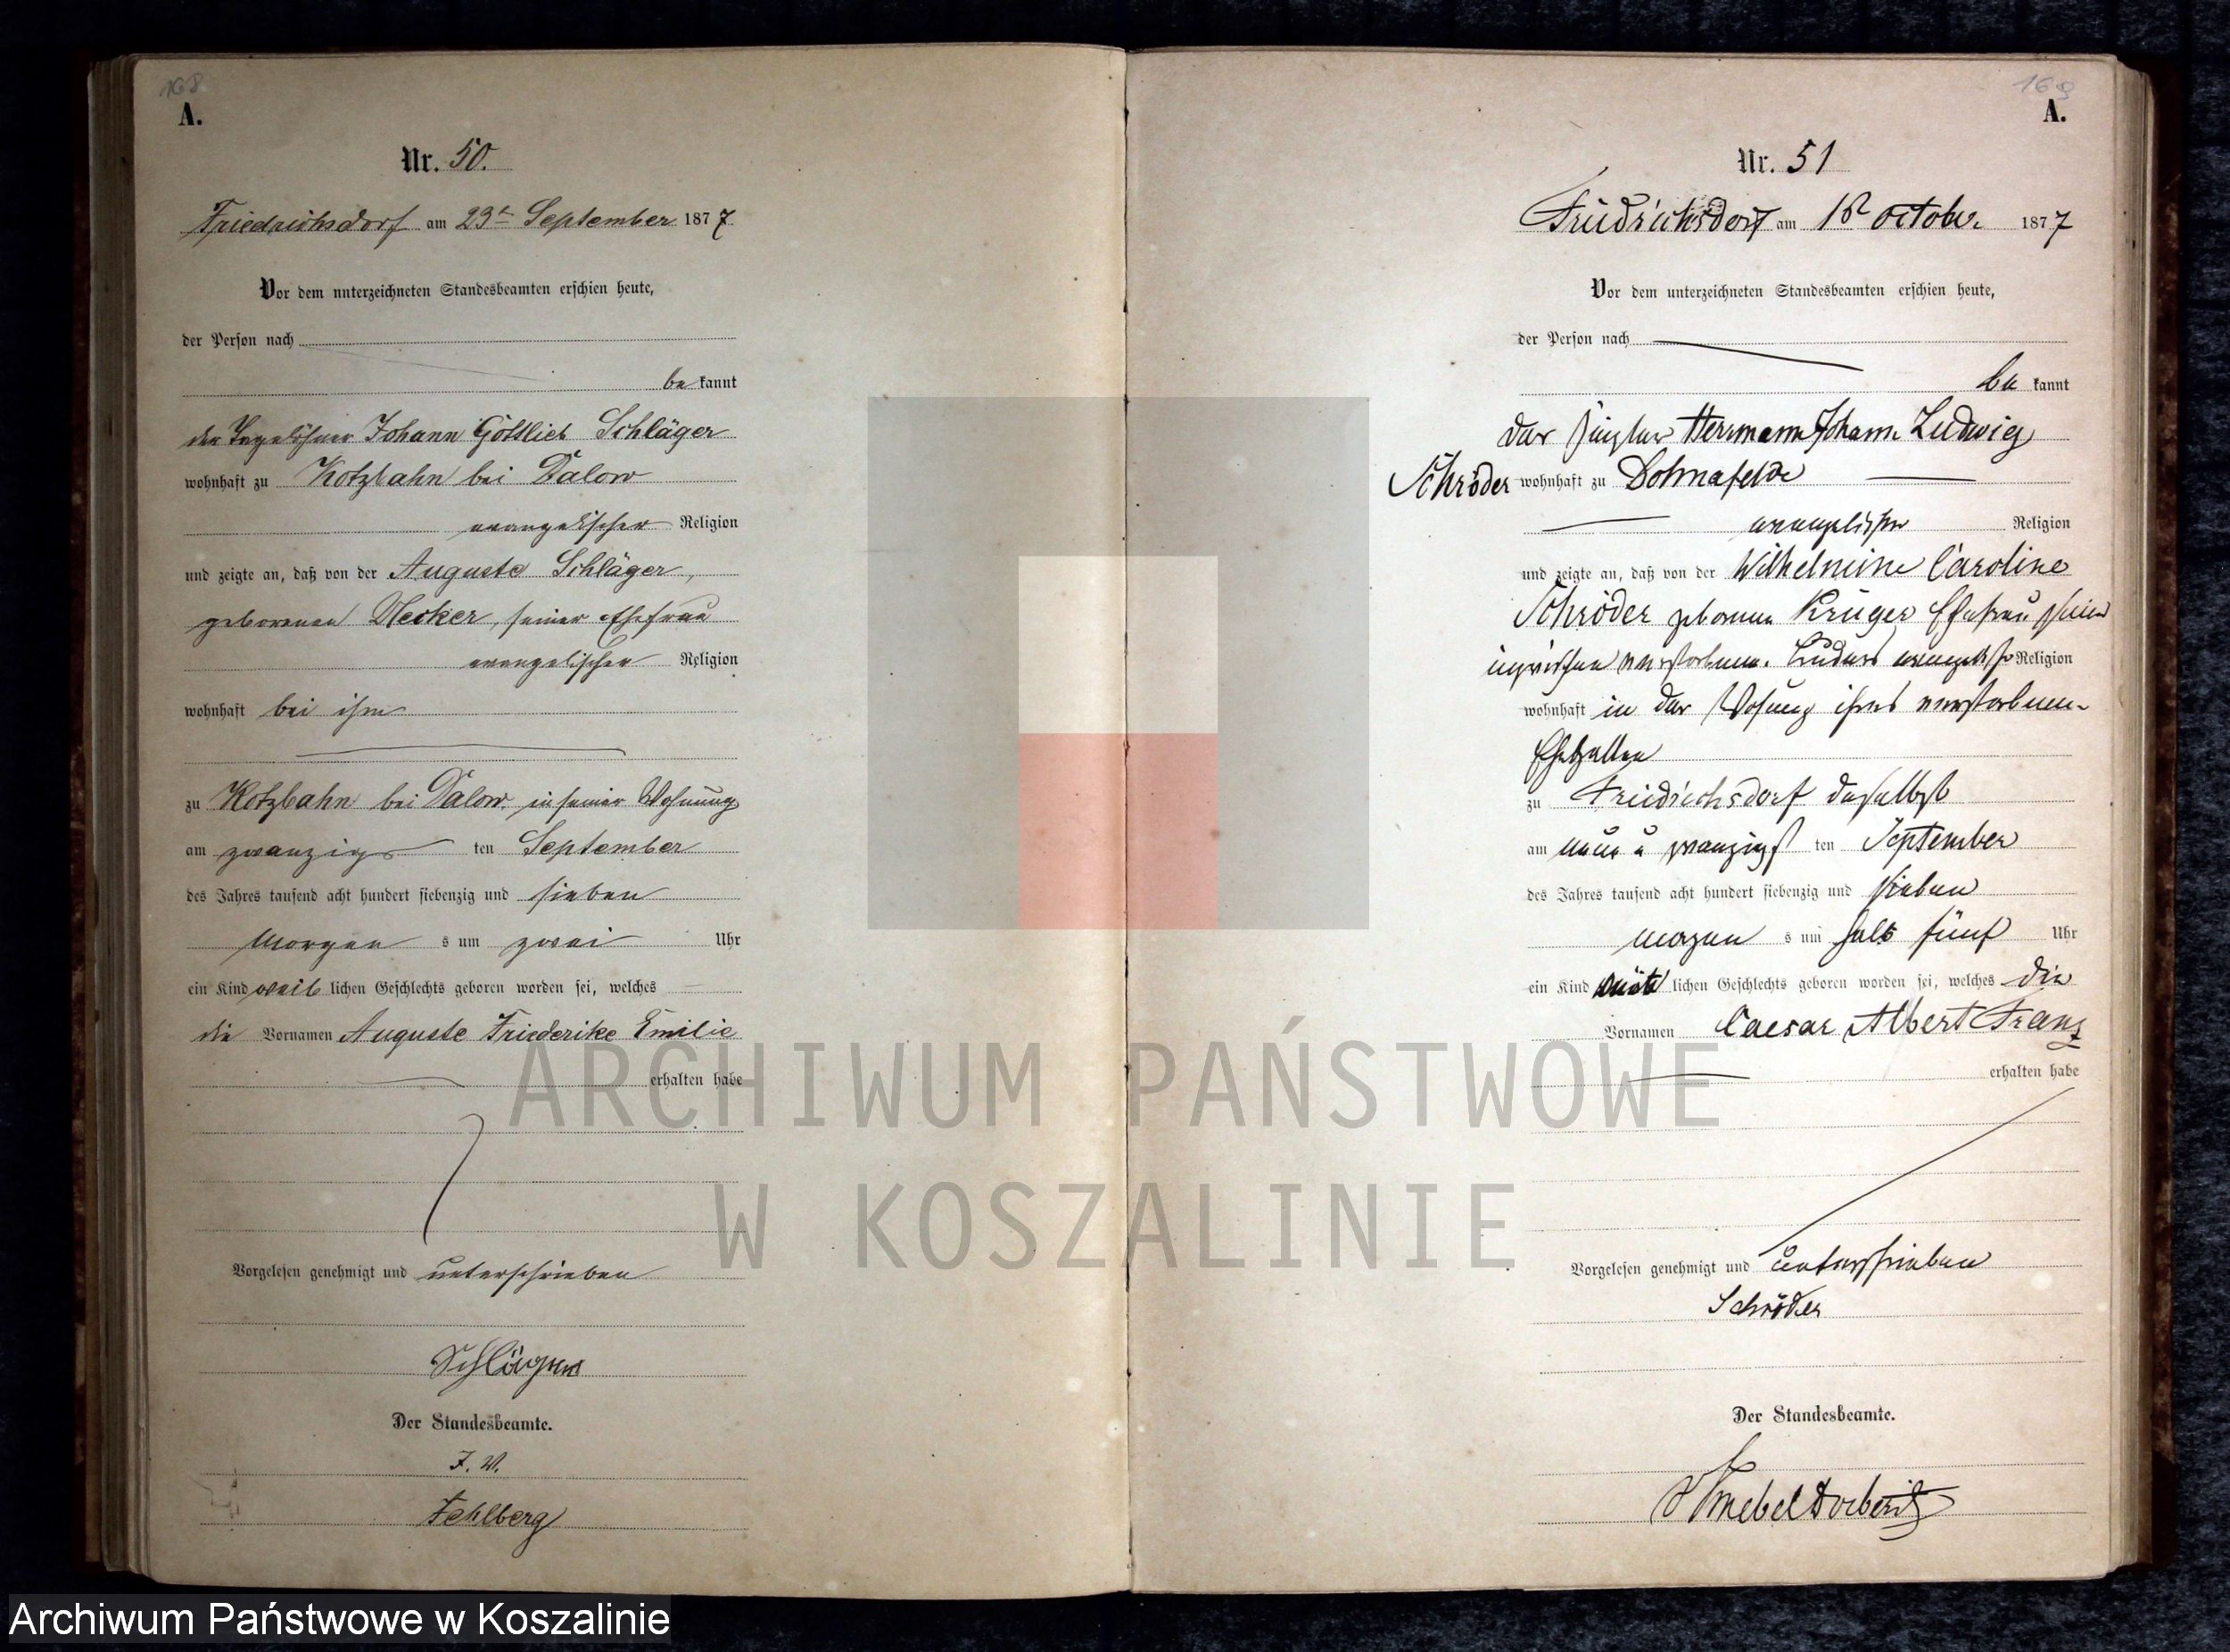 168
A.
Nr. 50.
Friedrichsdorf am 23t September 1877.
Vor dem unterzeichneten Standesbeamten erschien heute,
der Person nach
be kannt
der Tagelöhner Johann Gottlieb Schläger
wohnhaft zu Kotzbahn bei Dalow
evangelischer Religion
und zeigte an, daß von der Auguste Schläger,
geborenen Necker, seiner Ehefrau
evangelischer Religion
wohnhaft bei ihm
zu Kotzbahn bei Dalow in seiner Wohnung
am zwanzigs ten September
des Jahres tausend acht hundert siebenzig und sieben
Morgen s um zwei Uhr
ein Kind weib lichen Geschlechts geboren worden sei, welches
die Vornamen Auguste Friederike Emilie
erhalten habe
Vorgelesen genehmigt und unterschrieben
Schläger
Der Standesbeamte.
I. V.
Fehlberg
169
A.
Nr. 51
Friedrichsdorf am 1 October 1877
Vor dem unterzeichneten Standesbeamten erschien heute,
der Person nach
be kannt
der Ziegler Herrmann Johann Ludwig
Schröder wohnhaft zu Dohnafelde
evangelischer Religion
und zeigte an, daß von der Wilhelmine Caroline
Schröder geborenen Krüger Ehefrau seines
inzwischen verstorbenen Bruders evangelischer Religion
wohnhaft in der Wohnung ihres verstorbenen
Ehegatten
zu Friedrichsdorf daselbst
am neun u zwanzigs ten September
des Jahres tausend acht hundert siebenzig und sieben
morgen s um halb fünf Uhr
ein Kind lichen Geschlechts geboren worden sei, welches die
Vornamen Caesar Albert Franz
erhalten habe
Vorgelesen genehmigt und unterschrieben
Schröder
Der Standesbeamte.
ARCHIWUM PAŃSTWOWE
W KOSZALINIE
Archiwum Państwowe w Koszalinie